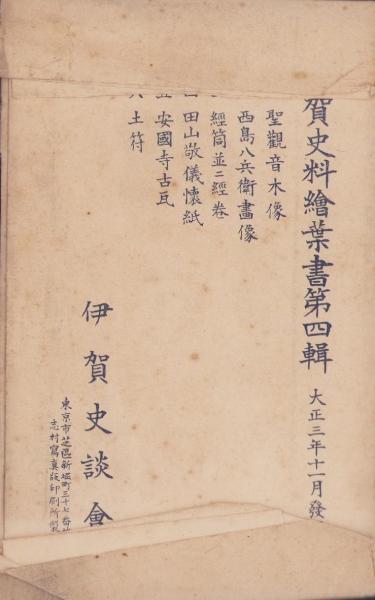 賀史料繪葉書第四輯 大正三年十一月發
聖觀音木像
西島八兵衛畫像
經筒並ニ經卷
田山敬儀懷紙
安國寺古瓦
土符
伊賀史談會
東京市芝區新堀町三十七番地
志村寫真版印刷所製